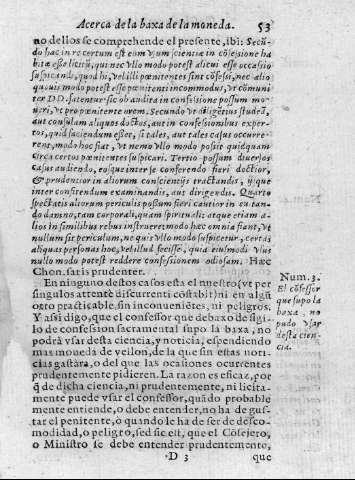 Acerca de la baxa de la moneda. 53
no dellos se comprehende el presente, ibi: Secū-
do hac in re certum est eum, qui scientiā in cōfesione ha
bita esse licitū, qui nec vllo modo potest alicui esse occasio
suspicandi, quod hi, vel illi pœnitentes sint cōfessi, nec alio
quouis modo potest esse pœnitenti incommodus, vt cōmuni
ter DD. fatentur sic ob audita in confessione possum mo-
neri, vt pro pœnitente orem. Secundo vt diligētius studeā,
aut consulam aliquos doctos, aut in confessionibus exper-
tos, quid faciendum esset, si tales, aut tales casus occurre-
rent, modo hoc fiat, vt nemo vllo modo possit quidquam
circa certos pœnitentes suspicari. Tertio possum diuersos
casus audiendo, eosque inter se conferendo fieri doctior,
& prudentior in aliorum conscientijs tractandis, ijsque
inter confitendum examinandis, aut dirigendis. Quarto
spectatis aliorum periculis possum fieri cautior in cauen-
do damno, tam corporali, quam spirituali: atque etiam a-
lios in similibus rebus instruere: modo hac omnia fiant, vt
nullum sit periculum, ne quis vllo modo suspicetur, certas
aliquas personas hoc, vel illud fecisse, quia eiusmodi vsus
nullo modo potest reddere confessionem odiosam. Hæc
Chon. satis prudenter.
En ninguno destos casos està el nuestro (vt per
singulos attentè discurrenti cōstabit) ni en algū
otro practicable sin inconueniētes, ni peligros.
Y assi digo, que el confessor que debaxo de sigi-
lo de confession sacramental supo la baxa, no
podrà vsar desta ciencia, y noticia, espendiendo
mas moneda de vellon, de la que sin estas noti-
cias gastàra, o del que las ocasiones ocurrentes
prudentemente pidieren. La razon es eficaz, por
q̄ de dicha ciencia, ni prudentemente, ni licita-
mente puede vsar el confessor, quādo probable
mente entiende, o debe entender, no ha de gus-
tar el penitente, o quando le ha de ser de desco-
modidad, o peligro, sed sic est, que el Cōsejero,
o Ministro se debe entender prudentemente,
D 3 que
Num. 3.
El cōfessor
que supo la
baxa, no
pudo vsar
desta cien-
cia.